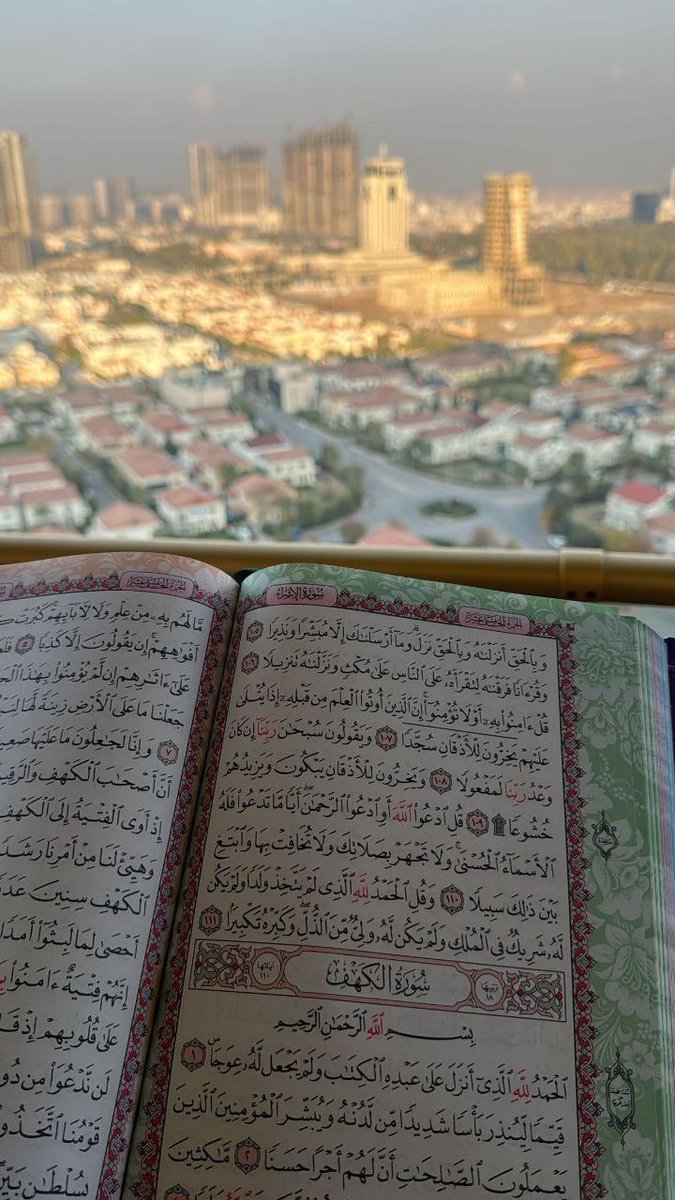 سُورَةُ الْإِسْرَاء
الجزء الخامس عشر
وَبِالْحَقِّ أَنزَلْنَاهُ وَبِالْحَقِّ نَزَلَ وَمَا أَرْسَلْنَاكَ إِلَّا مُبَشِّرًا وَنَذِيرًا ١٠٥
وَقُرْءَانًا فَرَقْنَاهُ لِتَقْرَأَهُ عَلَى النَّاسِ عَلَىٰ مُكْثٍ وَنَزَّلْنَاهُ تَنزِيلًا ١٠٦
قُلْ ءَامِنُوا بِهِ أَوْ لَا تُؤْمِنُوا إِنَّ الَّذِينَ أُوتُوا الْعِلْمَ مِن قَبْلِهِ إِذَا يُتْلَىٰ
عَلَيْهِمْ يَخِرُّونَ لِلْأَذْقَانِ سُجَّدًا ١٠٧ وَيَقُولُونَ سُبْحَانَ رَبِّنَا إِن كَانَ
وَعْدُ رَبِّنَا لَمَفْعُولًا ١٠٨ وَيَخِرُّونَ لِلْأَذْقَانِ يَبْكُونَ وَيَزِيدُهُمْ
خُشُوعًا ۩ ١٠٩ قُلِ ادْعُوا اللَّهَ أَوِ ادْعُوا الرَّحْمَٰنَ أَيًّا مَّا تَدْعُوا فَلَهُ
الْأَسْمَاءُ الْحُسْنَىٰ وَلَا تَجْهَرْ بِصَلَاتِكَ وَلَا تُخَافِتْ بِهَا وَابْتَغِ
بَيْنَ ذَٰلِكَ سَبِيلًا ١١٠ وَقُلِ الْحَمْدُ لِلَّهِ الَّذِي لَمْ يَتَّخِذْ وَلَدًا وَلَمْ يَكُن
لَّهُ شَرِيكٌ فِي الْمُلْكِ وَلَمْ يَكُن لَّهُ وَلِيٌّ مِّنَ الذُّلِّ وَكَبِّرْهُ تَكْبِيرًا ١١١
ترتيبها ١٨ سُورَةُ الْكَهْفِ آياتها ١١٠
بِسْمِ اللَّهِ الرَّحْمَٰنِ الرَّحِيمِ
الْحَمْدُ لِلَّهِ الَّذِي أَنزَلَ عَلَىٰ عَبْدِهِ الْكِتَابَ وَلَمْ يَجْعَل لَّهُ عِوَجًا ١
قَيِّمًا لِّيُنذِرَ بَأْسًا شَدِيدًا مِّن لَّدُنْهُ وَيُبَشِّرَ الْمُؤْمِنِينَ الَّذِينَ
يَعْمَلُونَ الصَّالِحَاتِ أَنَّ لَهُمْ أَجْرًا حَسَنًا ٢ مَّاكِثِينَ
الجزء الخامس عشر
مَّا لَهُم بِهِ مِنْ عِلْمٍ وَلَا لِآبَائِهِمْ كَبُرَتْ
أَفْوَاهِهِمْ إِن يَقُولُونَ إِلَّا كَذِبًا ٥
عَلَىٰ ءَاثَارِهِمْ إِن لَّمْ يُؤْمِنُوا بِهَٰذَا
جَعَلْنَا مَا عَلَى الْأَرْضِ زِينَةً لَّهَا
٧ وَإِنَّا لَجَاعِلُونَ مَا عَلَيْهَا
أَنَّ أَصْحَابَ الْكَهْفِ
إِذْ أَوَى الْفِتْيَةُ إِلَى الْكَهْفِ
وَهَيِّئْ لَنَا مِنْ أَمْرِنَا
الْكَهْفِ سِنِينَ
أَحْصَىٰ لِمَا لَبِثُوا أَمَدًا
إِنَّهُمْ فِتْيَةٌ ءَامَنُوا
عَلَىٰ قُلُوبِهِمْ إِذْ
لَن نَّدْعُوَا مِن
قَوْمُنَا اتَّخَذُوا
بِسُلْطَانٍ